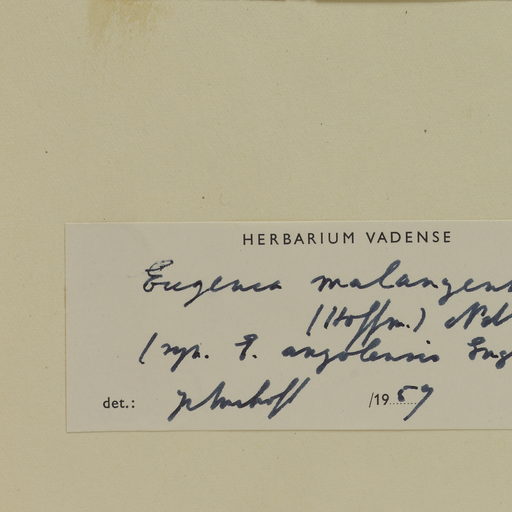 HERBARIUM VADENSE
Eugenia malangens
(Hoffm.) Nd
(syn. E. angolensis Eng
det.: /1957